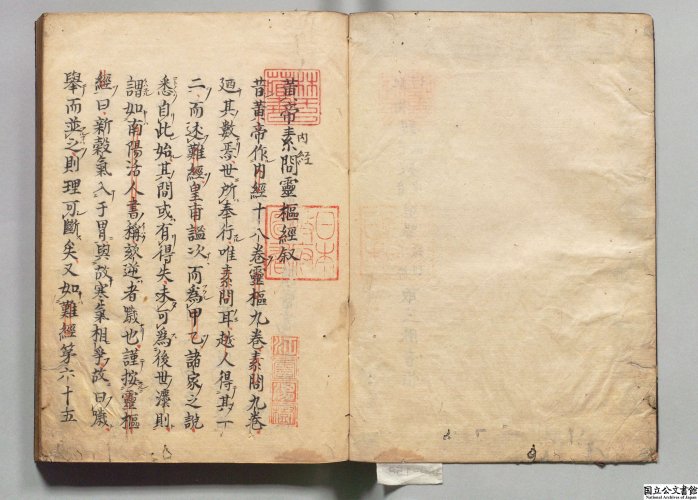 黄帝素問靈樞經叙
内經
昔黄帝作内經十八卷靈樞九卷素問九卷
廼其數焉世所奉行唯素問耳越人得其一
二而述難經皇甫謐次而為甲乙諸家之說
悉自此始其間或有得失未可為後世法則
謂如南陽活人書稱欬逆者噦也謹按靈樞
經曰新穀氣入于胃與故寒氣相爭故曰噦
舉而並之則理可斷矣又如難經第六十五
日本
國立公文書館
National Archives of Japan